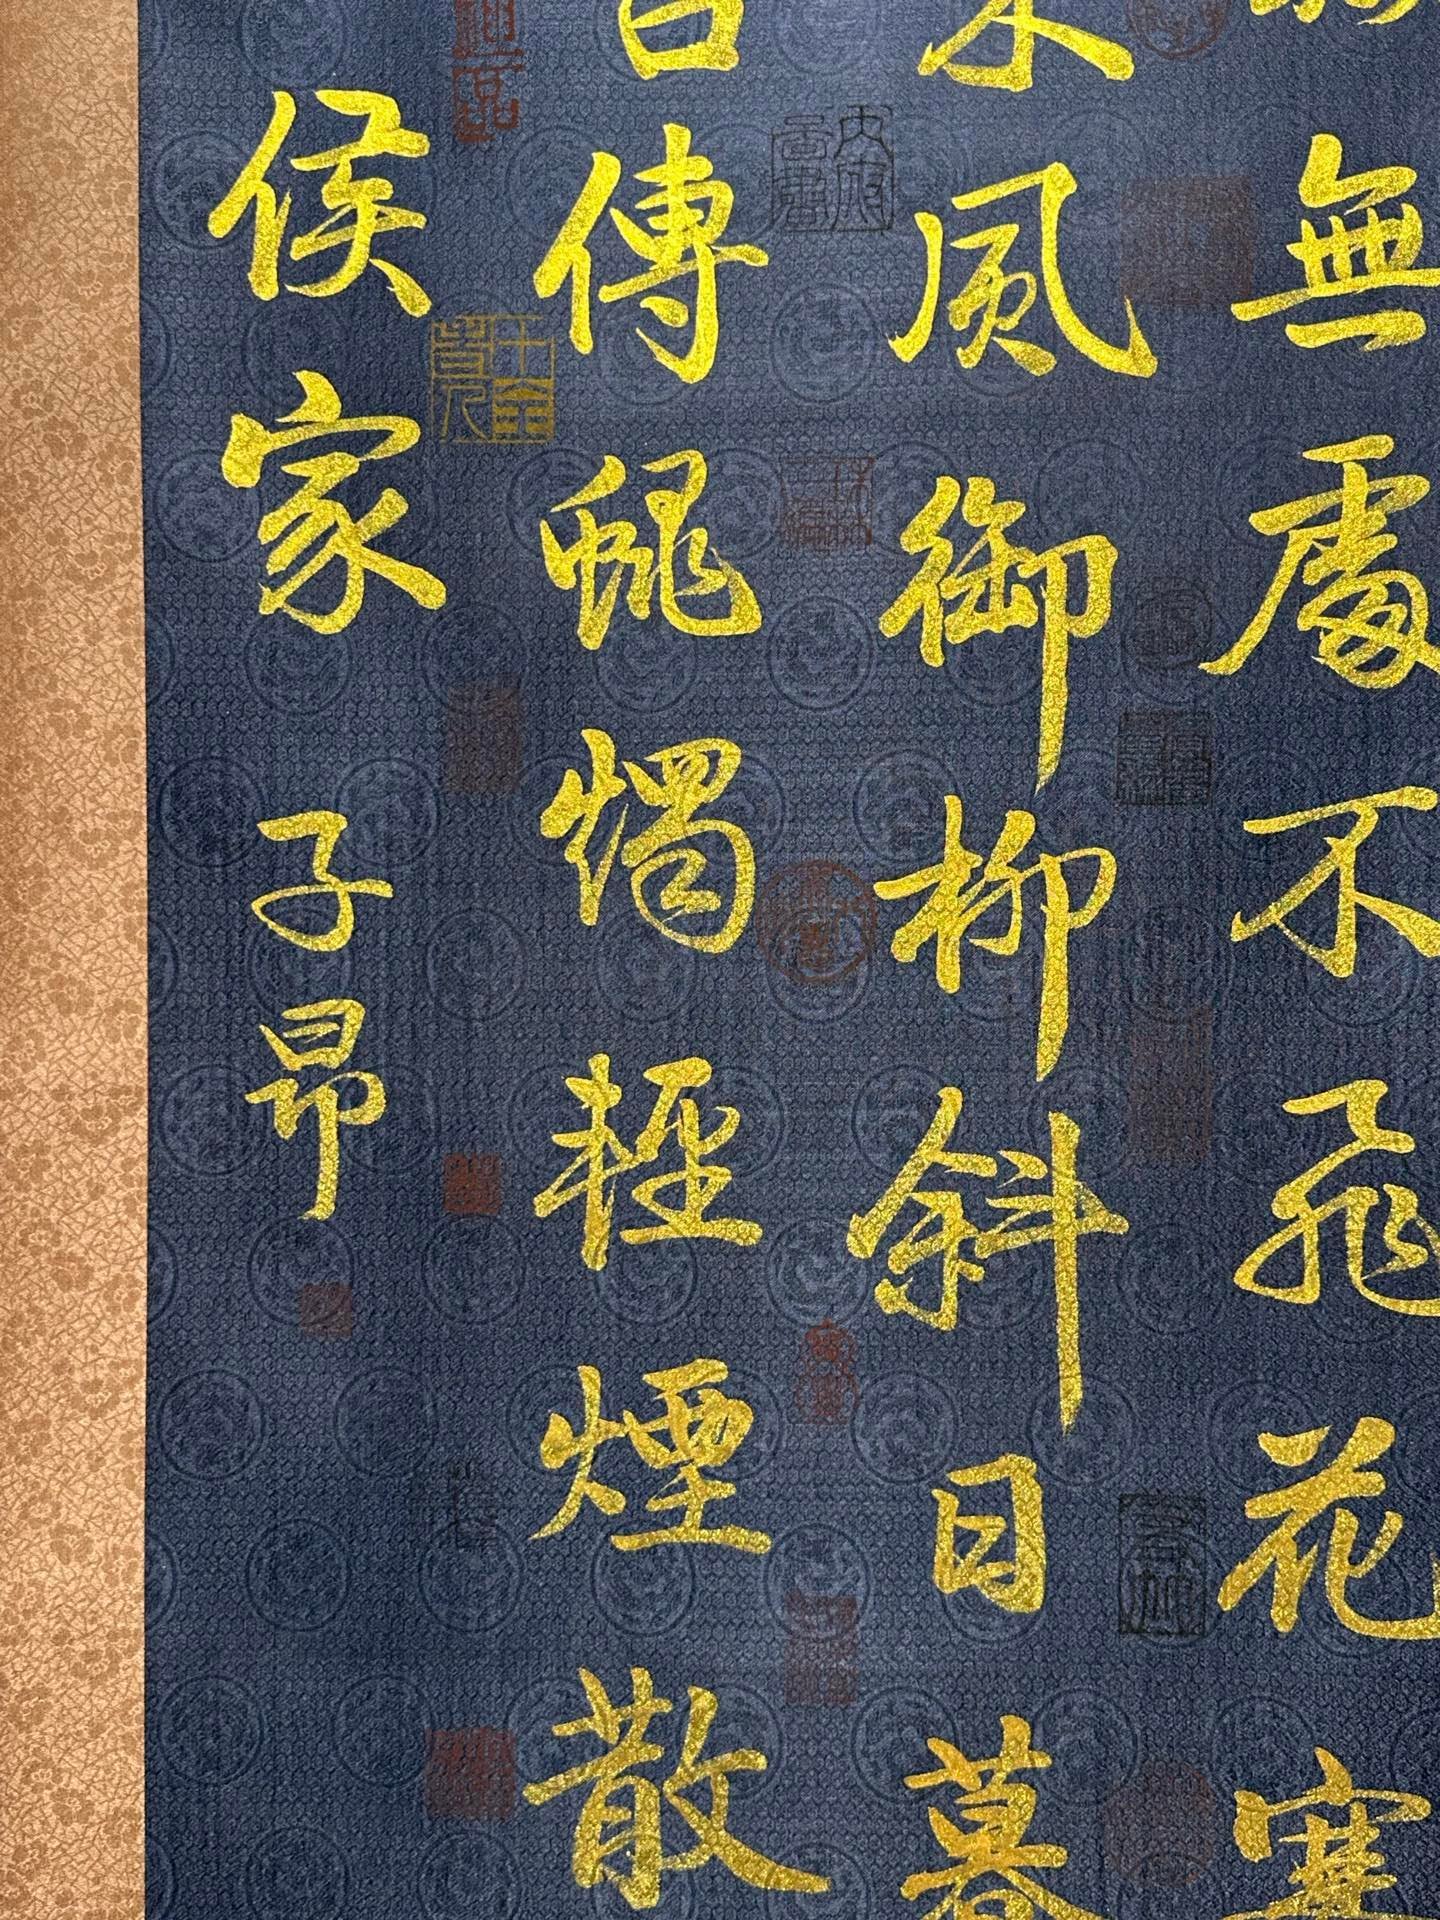 無處不飛花寒
風御柳斜日暮
傳蠟燭輕煙散
侯家
子昂